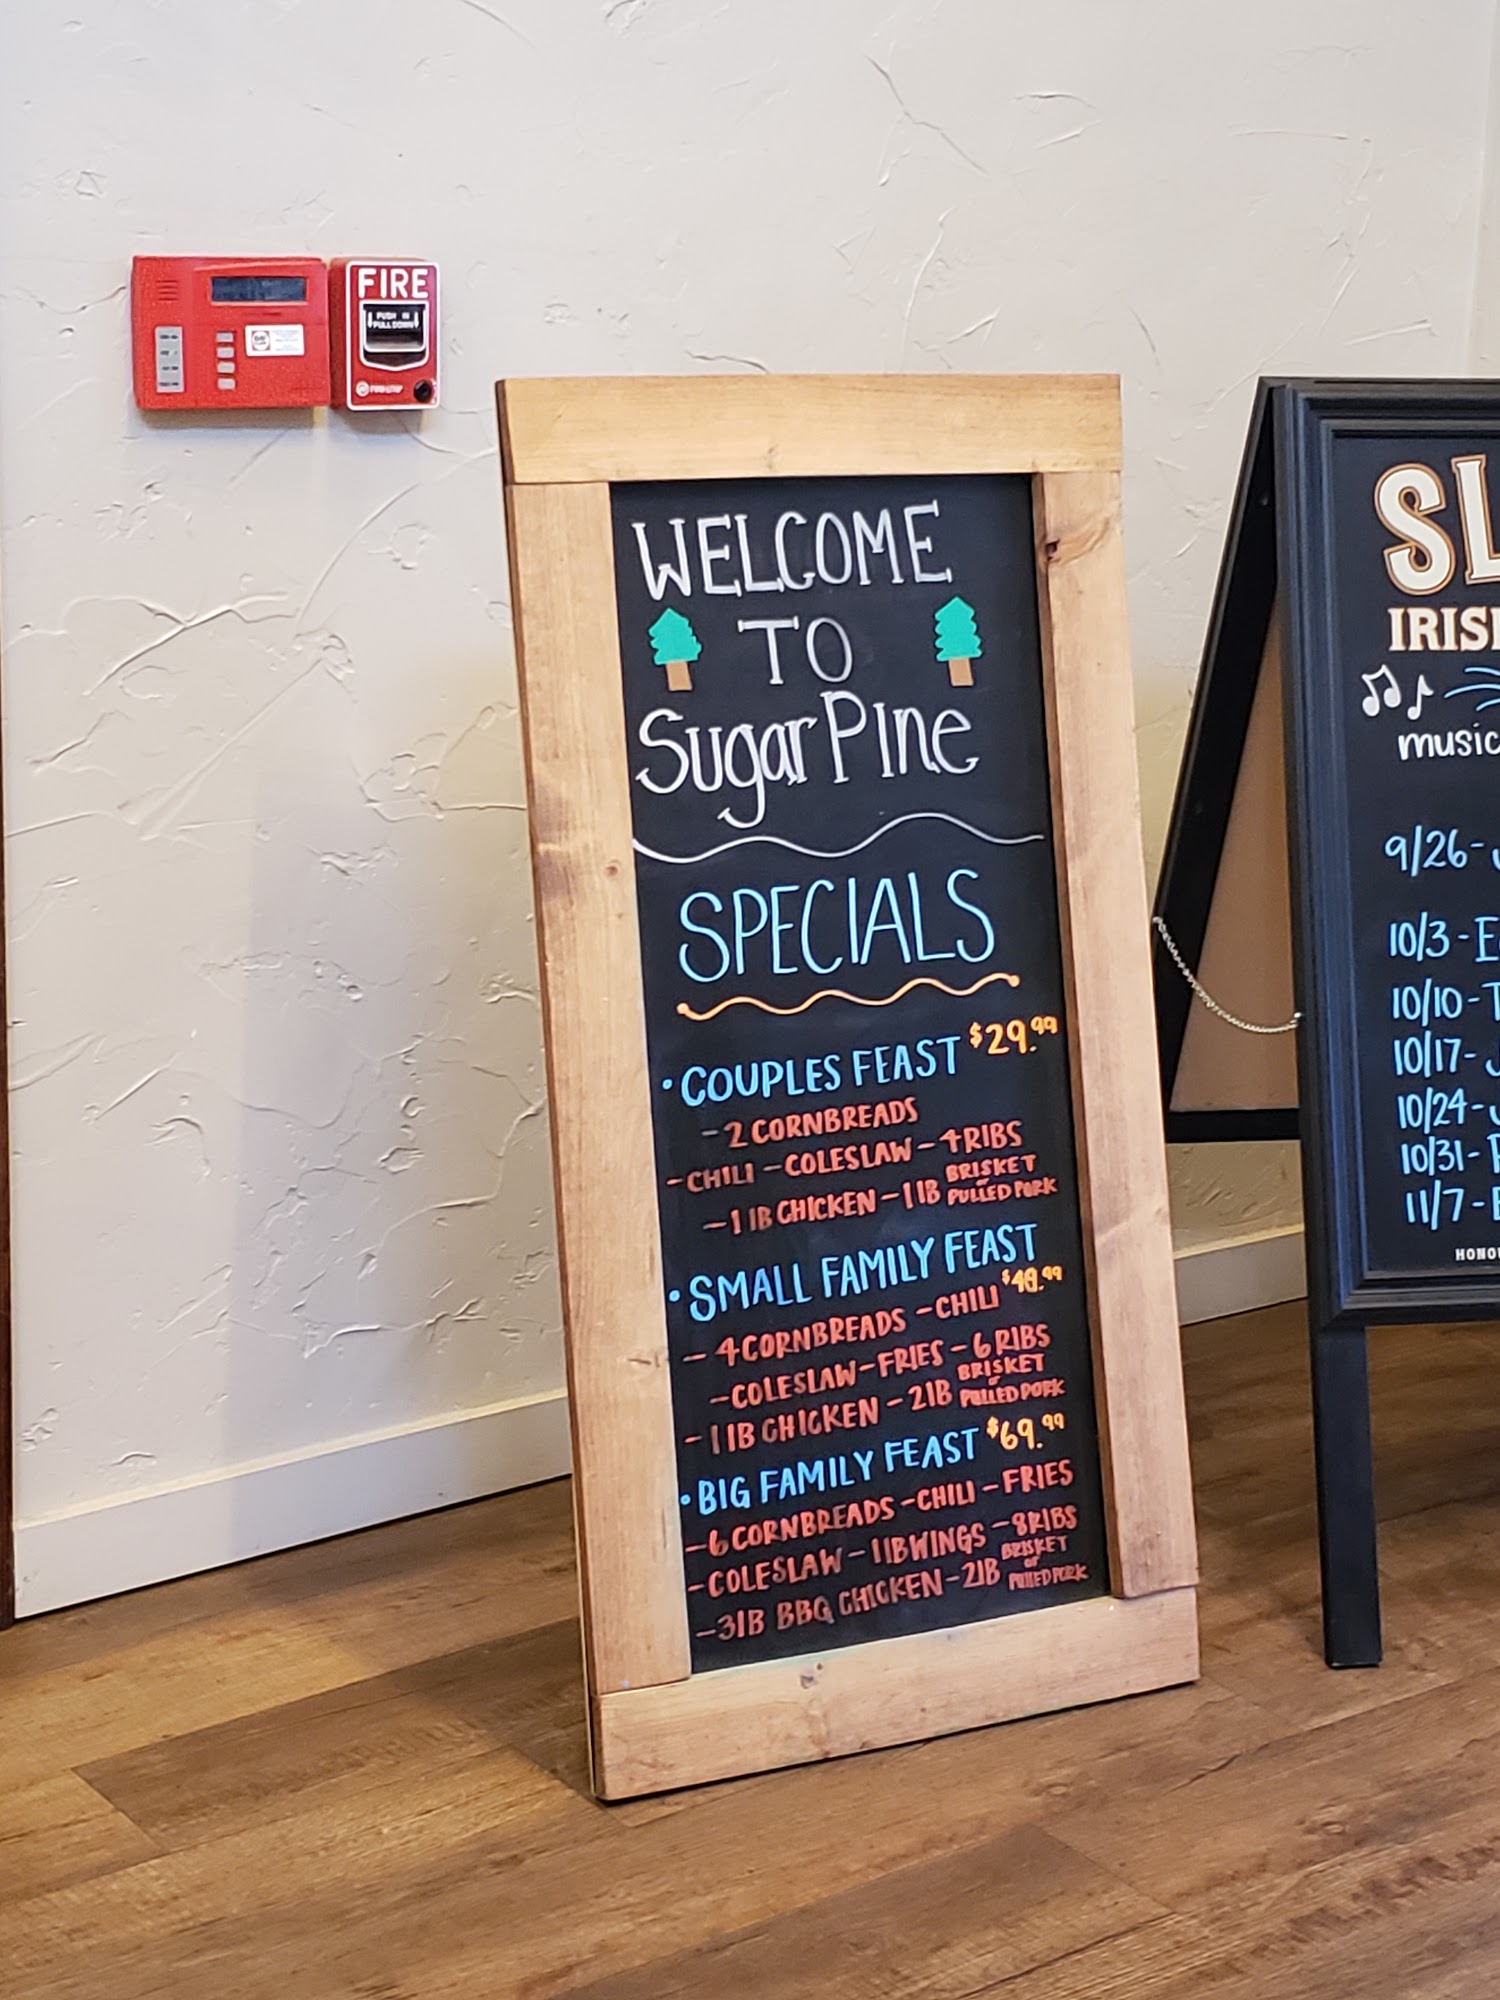 FIRE
PUSH IN
PULL DOWN
WELCOME
TO
Sugar Pine
SPECIALS
• COUPLES FEAST $29.99
- 2 CORNBREADS
- CHILI - COLESLAW - 4 RIBS
- 1 lB CHICKEN - 1 lB BRISKET or PULLED PORK
• SMALL FAMILY FEAST
- 4 CORNBREADS - CHILI $49.99
- COLESLAW - FRIES - 6 RIBS
- 1 lB CHICKEN - 2 lB BRISKET or PULLED PORK
• BIG FAMILY FEAST $69.99
- 6 CORNBREADS - CHILI - FRIES
- COLESLAW - 1 lB WINGS - 8 RIBS
- 3 lB BBQ CHICKEN - 2 lB BRISKET or PULLED PORK
SL
IRIS
music
9/26 -
10/3 - E
10/10 - T
10/17 - J
10/24 - J
10/31 -
11/7 -
HONO